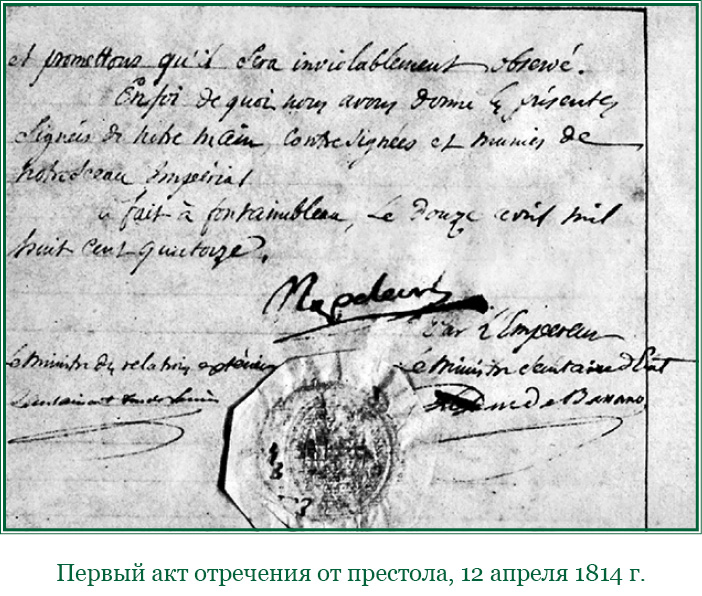 et promettons qu'il sera inviolablement observé.
En foi de quoi nous avons donné les présentes
signées de notre main, contresignées et munies de
notre sceau impérial
fait à fontainebleau, le douze avril mil
huit cent quatorze.
Napoleon
Par l'Empereur
le ministre des relations extérieures
le Ministre secrétaire d'Etat
duc de Bassano.
Первый акт отречения от престола, 12 апреля 1814 г.